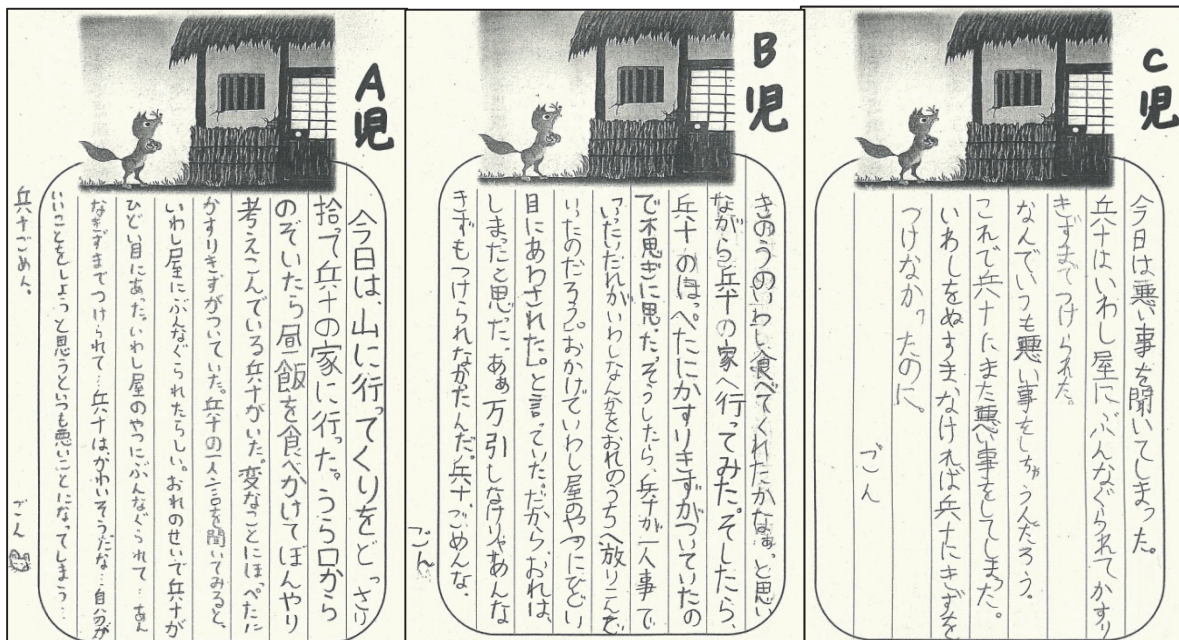 A児
今日は、山に行ってくりをどっさり
拾って兵十の家に行った。うら口から
のぞいたら昼飯を食べかけてぼんやり
考えこんでいる兵十がいた。変なことにほっぺたに
かすりきずがついていた。兵十の一人言を聞いてみると、
いわし屋にぶんなぐられたらしい。おれのせいで兵十が
ひどい目にあった。いわし屋のやつにぶんなぐられて…あん
なきずまでつけられて…兵十は、かわいそうだな…自分が
いいことをしようと思うといつも悪いことになってしまう…
兵十ごめん。
ごん
B児
きのうのいわし食べてくれたかなぁっと思い
ながら兵十の家へ行ってみた。そしたら、
兵十のほっぺたにかすりきずがついていたの
で不思ぎに思った。そうしたら、兵十が一人事で
「いったいだれがいわしなんかをおれのうちへ放りこんで
いったのだろう。おかげでいわし屋のやつにひどい
目にあわされた。」と言っていた。だから、おれは、
しまったと思った。あぁ万引しなけりゃあんな
きずもつけられなかたんだ。兵十、ごめんな。
ごん
C児
今日は悪い事を聞いてしまった。
兵十はいわし屋にぶんなぐられてかすり
きずまでつけられた。
なんでいつも悪い事をしちゃうんだろう。
これで兵十にまた悪い事をしてしまった。
いわしをぬすまなければ兵十にきずを
つけなかったのに。
ごん